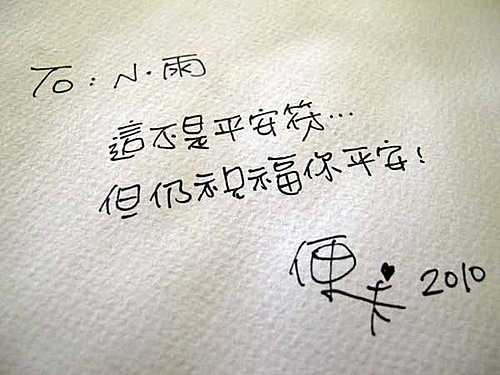 To：小雨
這不是平安符…
但仍祝福你平安！
便 2010